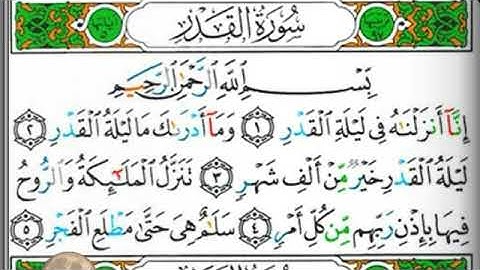 سُورَةُ الْقَدْرِ
بِسْمِ اللَّهِ الرَّحْمَٰنِ الرَّحِيمِ
إِنَّآ أَنزَلْنَٰهُ فِى لَيْلَةِ الْقَدْرِ ١ وَمَآ أَدْرَىٰكَ مَا لَيْلَةُ الْقَدْرِ ٢
لَيْلَةُ الْقَدْرِ خَيْرٌ مِّنْ أَلْفِ شَهْرٍ ٣ تَنَزَّلُ الْمَلَٰٓئِكَةُ وَالرُّوحُ
فِيهَا بِإِذْنِ رَبِّهِم مِّن كُلِّ أَمْرٍ ٤ سَلَٰمٌ هِىَ حَتَّىٰ مَطْلَعِ الْفَجْرِ ٥